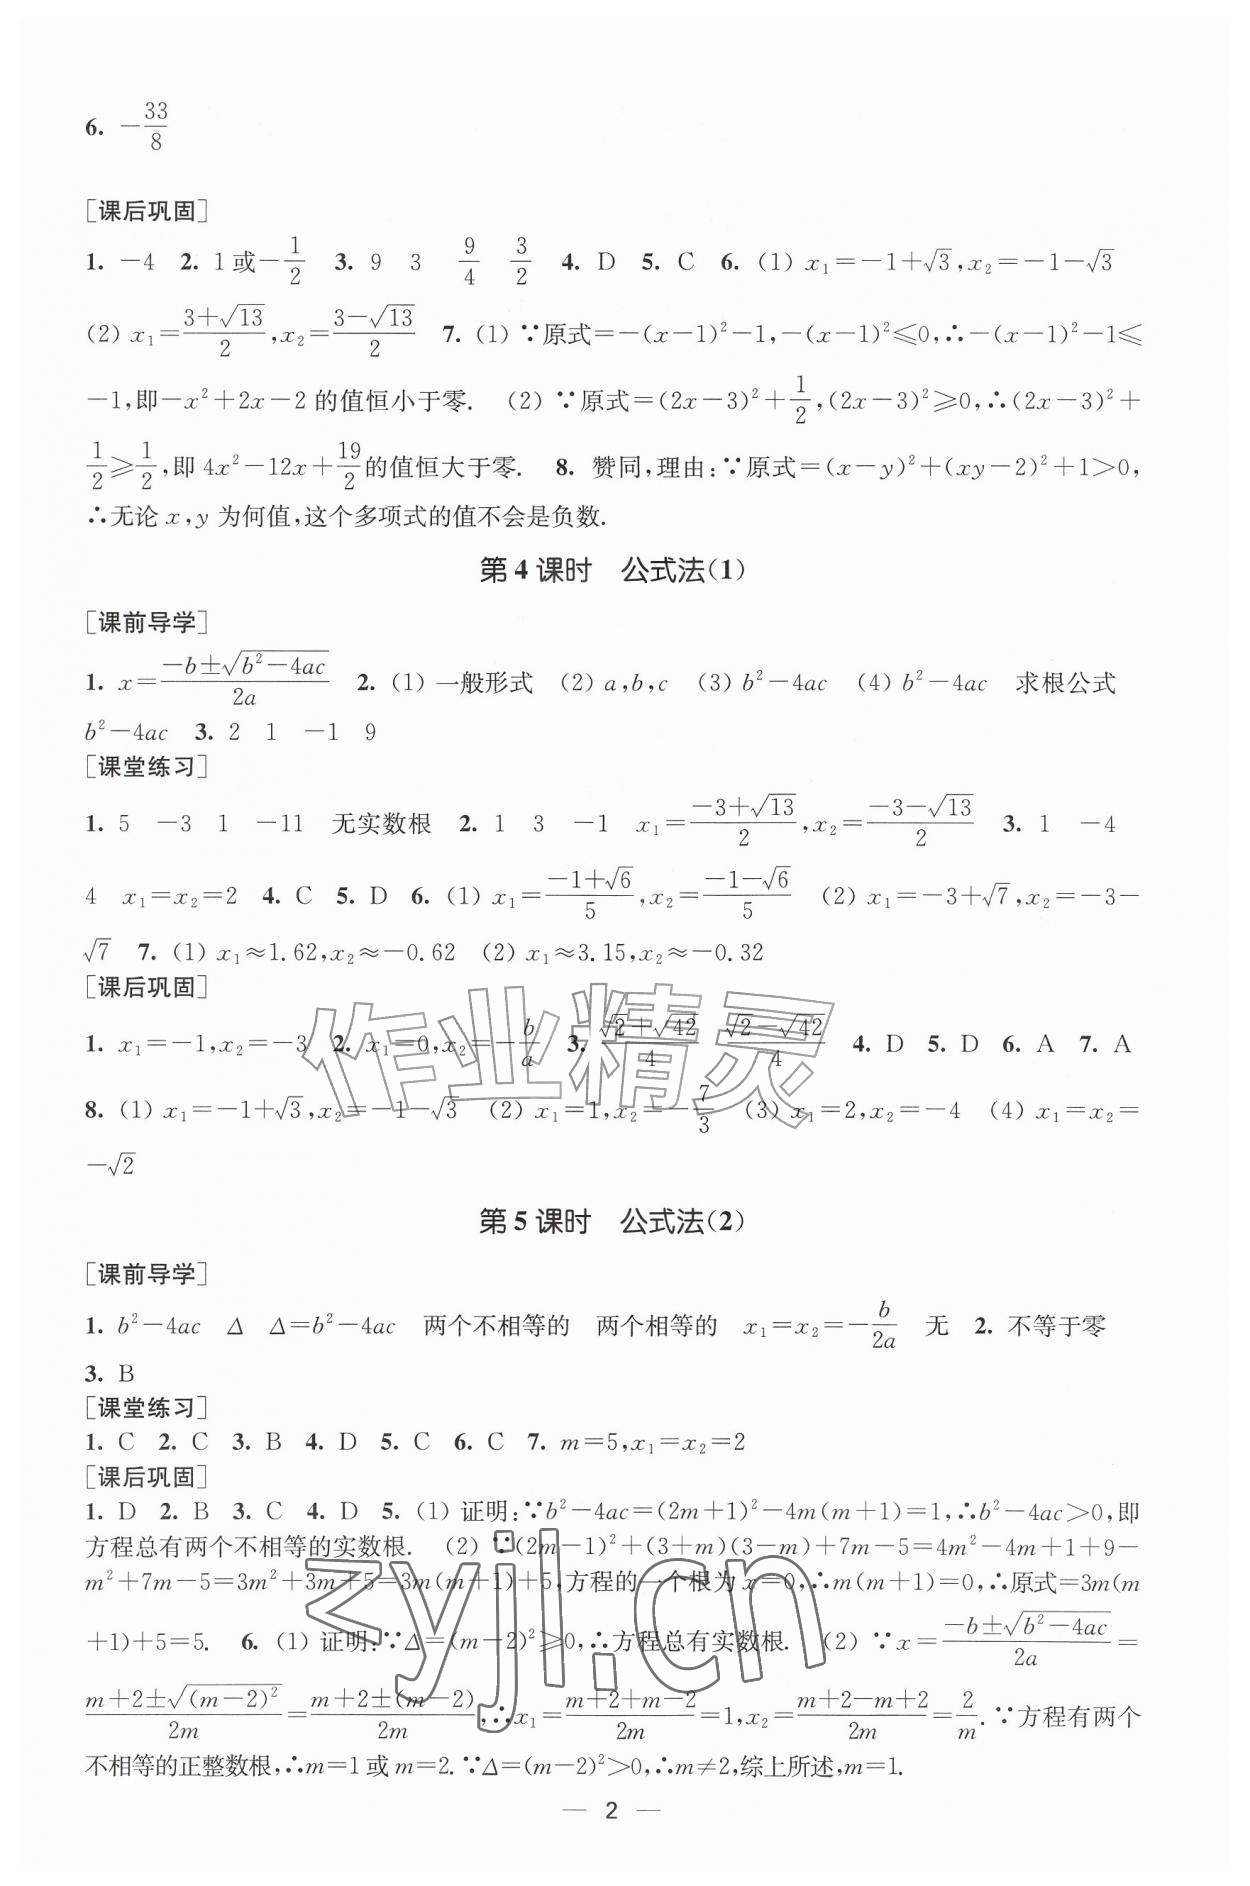 6. $-\frac{33}{8}$
[课后巩固]
1. −4 2. 1或$-\frac{1}{2}$ 3. 9 3 $\frac{9}{4}$ $\frac{3}{2}$ 4. D 5. C 6. (1) $x_1=-1+\sqrt{3},x_2=-1-\sqrt{3}$
(2) $x_1=\frac{3+\sqrt{13}}{2},x_2=\frac{3-\sqrt{13}}{2}$ 7. (1) ∵原式=$-(x-1)^2-1,-(x-1)^2≤0$,∴$-(x-1)^2-1≤$
−1,即$-x^2+2x-2$的值恒小于零. (2) ∵原式=$(2x-3)^2+\frac{1}{2},(2x-3)^2≥0$,∴$(2x-3)^2+$
$\frac{1}{2}≥\frac{1}{2}$,即$4x^2-12x+\frac{19}{2}$的值恒大于零. 8. 赞同,理由:∵原式=$(x-y)^2+(xy-2)^2+1>0$,
∴无论x,y为何值,这个多项式的值不会是负数.
第4课时 公式法(1)
[课前导学]
1. $x=\frac{-b±\sqrt{b^2-4ac}}{2a}$ 2. (1) 一般形式 (2) a,b,c (3) $b^2-4ac$ (4) $b^2-4ac$ 求根公式
$b^2-4ac$ 3. 2 1 −1 9
[课堂练习]
1. 5 −3 1 −11 无实数根 2. 1 3 −1 $x_1=\frac{-3+\sqrt{13}}{2},x_2=\frac{-3-\sqrt{13}}{2}$ 3. 1 −4
4 $x_1=x_2=2$ 4. C 5. D 6. (1) $x_1=\frac{-1+\sqrt{6}}{5},x_2=\frac{-1-\sqrt{6}}{5}$ (2) $x_1=-3+\sqrt{7},x_2=-3-$
$\sqrt{7}$ 7. (1) $x_1≈1.62,x_2≈-0.62$ (2) $x_1≈3.15,x_2≈-0.32$
[课后巩固]
1. $x_1=-1,x_2=-3$ 2. $x_1=0,x_2=-\frac{b}{a}$ 3. $\frac{\sqrt{2}+\sqrt{42}}{4}$ $\frac{\sqrt{2}-\sqrt{42}}{4}$ 4. D 5. D 6. A 7. A
8. (1) $x_1=-1+\sqrt{3},x_2=-1-\sqrt{3}$ (2) $x_1=1,x_2=-\frac{7}{3}$ (3) $x_1=2,x_2=-4$ (4) $x_1=x_2=$
$-\sqrt{2}$
作业精灵
第5课时 公式法(2)
[课前导学]
1. $b^2-4ac$ Δ $Δ=b^2-4ac$ 两个不相等的 两个相等的 $x_1=x_2=-\frac{b}{2a}$ 无 2. 不等于零
3. B
[课堂练习]
1. C 2. C 3. B 4. D 5. C 6. C 7. $m=5,x_1=x_2=2$
[课后巩固]
1. D 2. B 3. C 4. D 5. (1) 证明:∵$b^2-4ac=(2m+1)^2-4m(m+1)=1$,∴$b^2-4ac>0$,即
方程总有两个不相等的实数根. (2) ∵$(2m-1)^2+(3+m)(3-m)+7m-5=4m^2-4m+1+9-$
$m^2+7m-5=3m^2+3m+5=3m(m+1)+5$,方程的一个根为$x=0$,∴$m(m+1)=0$,∴原式=$3m(m$
$+1)+5=5$. 6. (1) 证明:∵$Δ=(m-2)^2≥0$,∴方程总有实数根. (2) ∵$x=\frac{-b±\sqrt{b^2-4ac}}{2a}=$
$\frac{m+2±\sqrt{(m-2)^2}}{2m}=\frac{m+2±(m-2)}{2m}$,∴$x_1=\frac{m+2+m-2}{2m}=1,x_2=\frac{m+2-m+2}{2m}=\frac{2}{m}$.∵方程有两个
不相等的正整数根,∴m=1或m=2.∵$Δ=(m-2)^2>0$,∴m≠2,综上所述,m=1.
zyjl.cn
— 2 —